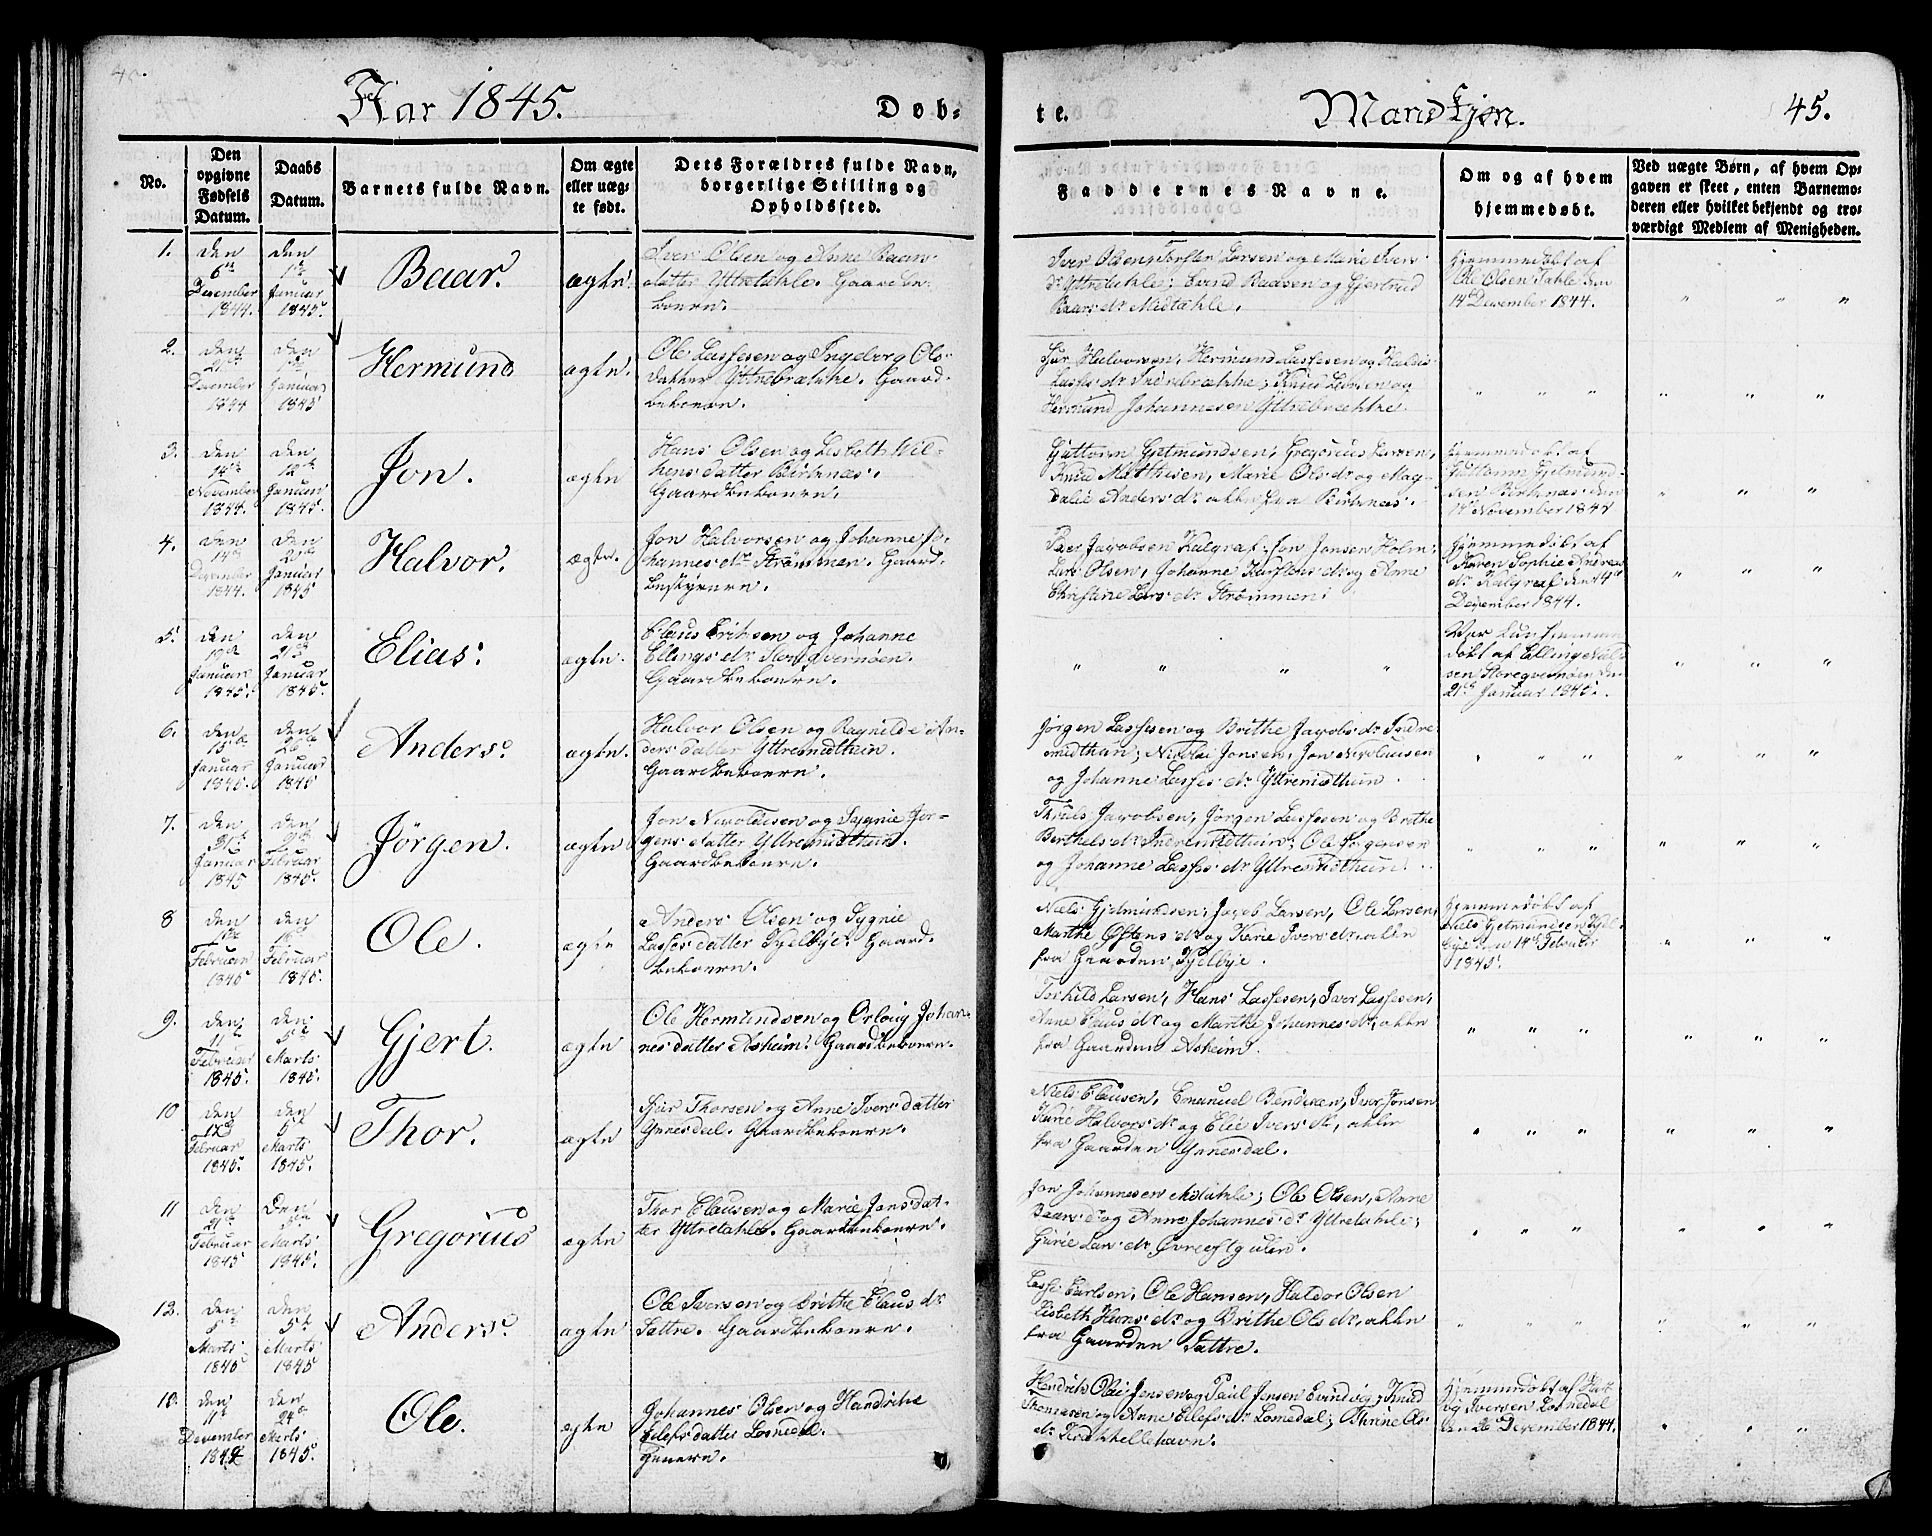 Aar 1845.
Døb-
te.
Mandkjøn.
45.
No.
Den
opgivne
Fødsels
Datum.
Daabs
Datum.
Barnets fulde Navn.
Om ægte
eller uæg-
te født.
Dets Forældres fulde Navn,
borgerlige Stilling og
Opholdssted.
Faddernes Navne.
Om og af hvem
hjemmedøbt.
Ved uægte Børn, af hvem Op-
gaven er skeet, enten Barnemo-
deren eller hvilket bekjendt og tro-
værdigt Medlem af Menigheden.
1.
den
6te
December
1844.
den
1te
Januar
1845.
Baar.
ægte
Iver Olsen og Anne Baars
datter Yttretahle. Gaardbe-
boere.
Iver Olsen, Torsten Larsen og Marie Ivers
dr Yttretahle; Evind Madsen og Gjertrud
Baars dr Midtahle.
Hjemmedøbt af
Ole Olsen Tahle den
14de December 1844.
2.
den
December
1844
den
Januar
1845
Hermund
ægte.
Ole Lassesen og Ingeborg Ols-
datter Yttrebrække. Gaard-
beboere.
Sjur Halvorsen, Hermund Lassesen og
Lasses dr Indrebrække; Knud Larsen og
Hermund Johannesen Yttrebrække.
3.
den
14de
November
1844.
den
12te
Januar
1845.
Jon.
ægte
Hans Olsen og Lisbeth Wil-
hens datter Birknæs.
Gaardbeboere.
Guttorm Gjetmundsen, Gregorius Larsen,
Knud Mathisen, Marie Ols dr og Mag-
dalie Anders dr alle fra Birknæs.
Hjemmedøbt af
Guttorm Gjetmund-
sen Birknæs den
14de November 1844
4.
den
14de
December
1844.
den
21de
Januar
1845
Halvor.
ægte.
Jon Halvorsen og Johanne Jo-
hannes dr Strømmen. Gaard-
bestyrere.
Peer Jacobsen Kalgraf, Jon Jansen Holm,
Lars Olsen, Johanne Karstens dr og Anne
Christine Lars dr Strømmen.
Hjemmedøbt af
Karen Sophie Andreas
dr Kalgraf den 14de
December 1844.
5.
den
19de
Januar
1845.
den
21de
Januar
1845.
Elias.
ægte.
Claus Erichsen og Johanne
Ellings dr Storeqvernøen.
Gaardbeboere.
Var kun hjemme
døbt af Elling
sen Storeqvernøen den
21de Januar 1845.
6.
den
15de
Januar
1845.
den
26de
Januar
1845
Anders.
ægte.
Halvor Olsen og Ragnilde An-
ders datter Yttremidthun.
Gaardbeboere.
Jørgen Lassesen og Brithe Jacobs dr Indre
midthun; Nicolai Jonsen, Jon Nicolaisen
og Johanne Lasses dr Yttremidthun.
7.
den
Januar
1845
den
Februar
1845.
Jørgen.
ægte
Jon Nicolaisen og Sygnie Jør-
gens datter Yttremidthun.
Gaardbeboere.
Jacobsen, Jørgen Lassesen og Brithe
Berthels dr Indremidthun; Ole Jørgensen
og Johanne Lasses dr Yttremidthun.
8
den
Februar
1845
den
Februar
1845.
Ole.
ægte
Anders Olsen og Sygnie
Lasses datter Kjelbye. Gaard-
beboere.
Niels Gjetmundsen, Jacob Larsen, Ole Larsen
Marthe Østens dr og Karie Ivers dr, alle
fra Gaarden Kjelbye.
Hjemmedøbt af
Niels Gjetmundsen Kjel-
bye den 14de Februar
1845.
9.
den
11te
Februar
1845.
den
5te
Marts
1845.
Gjert.
ægte
Ole Hermundsen og Orloug Johan-
nes datter Asheim. Gaardbeboere.
Torkild Larsen, Hans Lassesen, Iver Lassesen,
Anne Claus dr og Marthe Johannes dr, alle
fra Gaarden Asheim.
10
den
Februar
1845.
den
Marts
1845.
Thor.
ægte
Sjur Thorsen og Anne Ivers datter
Ynnesdal. Gaardbeboere.
Niels Clausen, Emanuel Bendixen, Iver Jonsen
Karie Halvors dr og Elie Ivers dr, alle
fra Gaarden Ynnesdal.
11
den
21de
Februar
1845
Den
5te
Marts
1845.
Gregorius
ægte
Thor Clausen og Marie Jons dat-
ter Yttretahle. Gaardbeboere.
Jon Johannesen Midtahle; Ole Olsen, Anne
Baars dr og Anne Johannes dr Yttretahle;
Gurie Lars dr
12.
den
Marts
1845
den
5te
Marts
1845
Anders.
ægte
Ole Iversen og Brithe Claus dr
Sattre. Gaardbeboere.
Lasse Carlsen, Ole Hansen, Haldor Olsen
Lisbeth Hans dr og Brithe Ols dr, alle
fra Gaarden Sattre.
den
11te
December
1844
den
24de
Marts
1845.
Ole.
ægte
Johannes Olsen og Hendrikke
Elefs datter Losnedal.
Tjenere.
Hendrik Olai Jensen og Paul Jensen Evindvig; Knud
Thomasen og Anne Elefs dr Losnedal;
dr Krakhellehavn.
Hjemmedøbt af
Iversen Losnedal
den 26 December 1844.